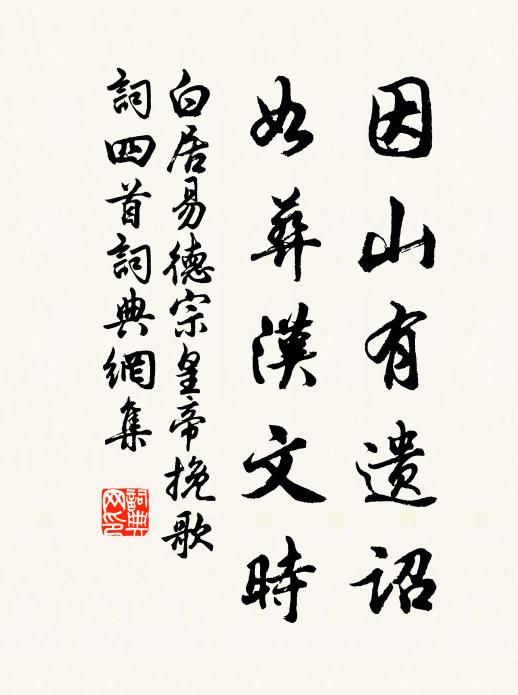 因山有遺詔
如葬漢文時
白居易德宗皇帝挽歌
詞四首詞典網集
詞典网印